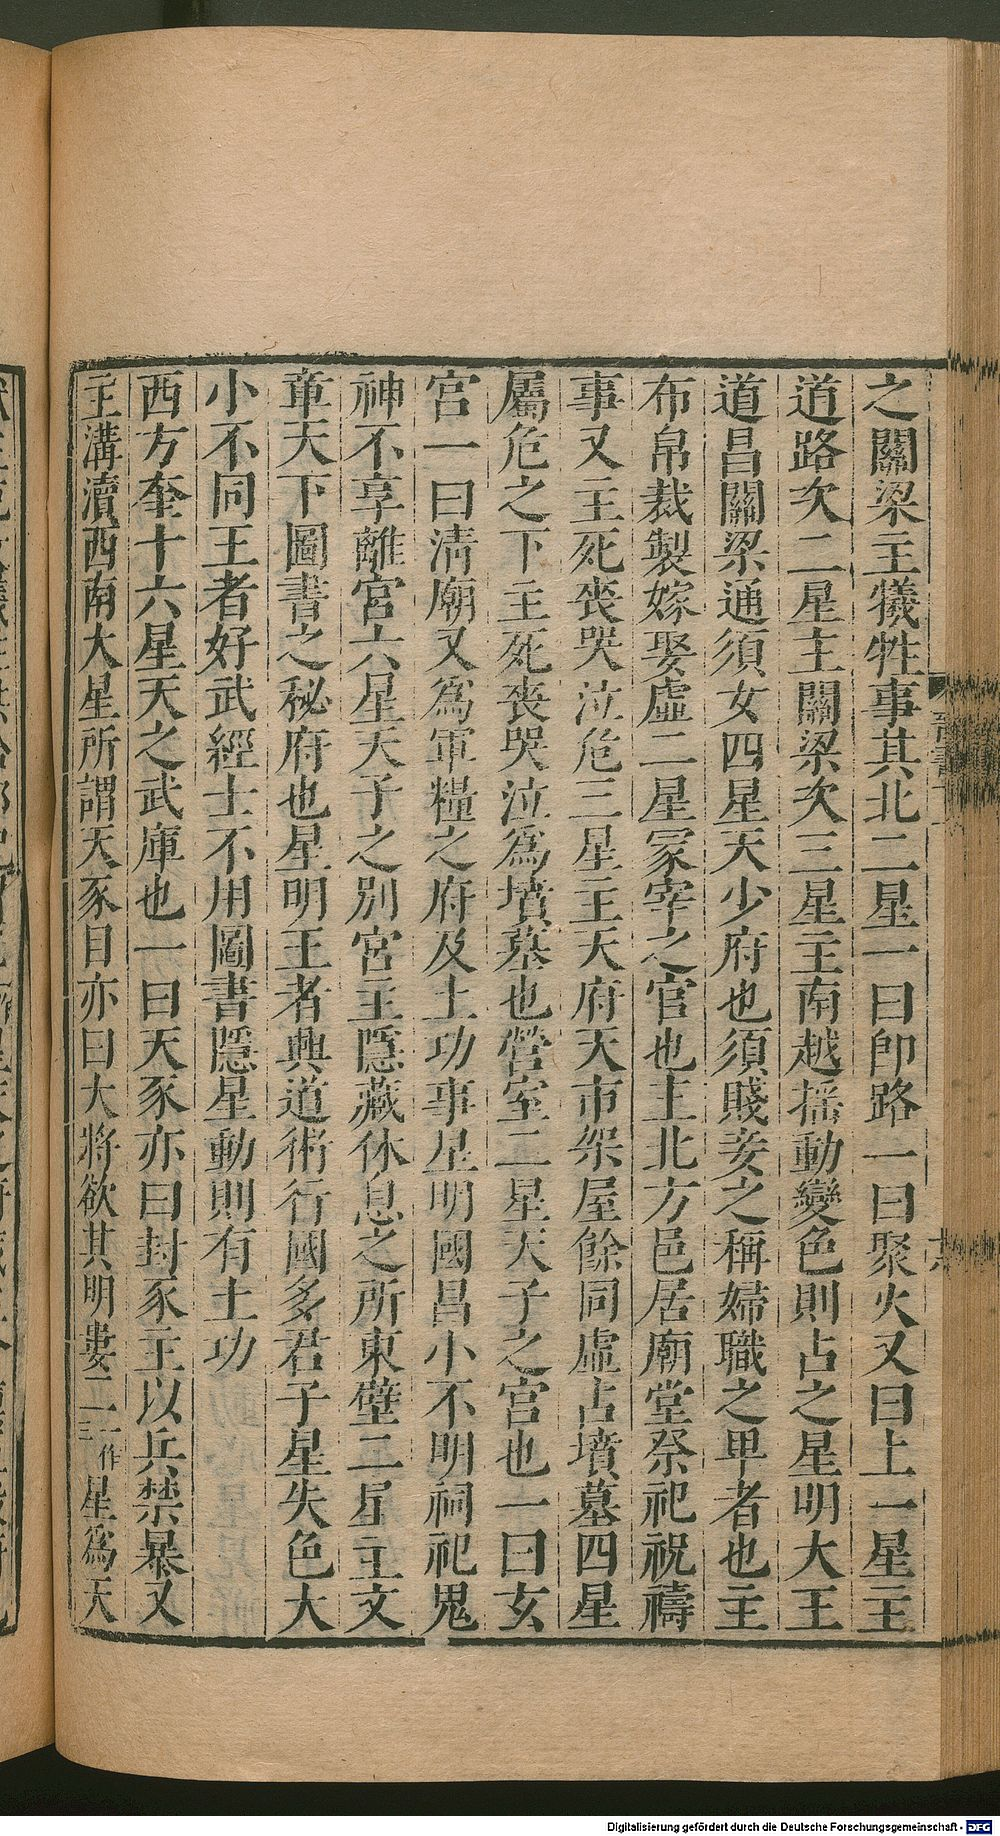 之關梁主犧牲事其北二星一曰即路一曰聚火又曰上一星主
道路次二星主關梁次三星主南越揺動變色則占之星明大王
道昌關梁通須女四星天少府也須賤妾之稱婦職之卑者也主
布帛裁製嫁娶虛二星冢宰之官也主北方邑居廟堂祭祀祝禱
事又主死喪哭泣危三星主天府天市架屋餘同虛占墳墓四星
屬危之下主死喪哭泣爲墳墓也營室二星天子之宮也一曰玄
宮一曰淸廟又爲軍糧之府及土功事星明國昌小不明祠祀鬼
神不享離宮六星天子之別宮主隱藏休息之所東壁二星主文
章天下圖書之秘府也星明王者興道術行國多君子星失色大
小不同王者好武經士不用圖書隱星動則有土功
西方奎十六星天之武庫也一曰天豕亦曰封豕主以兵禁暴又
主溝瀆西南大星所謂天豕目亦曰大將欲其明婁二一作三星爲天
Digitalisierung gefördert durch die Deutsche Forschungsgemeinschaft - DFG